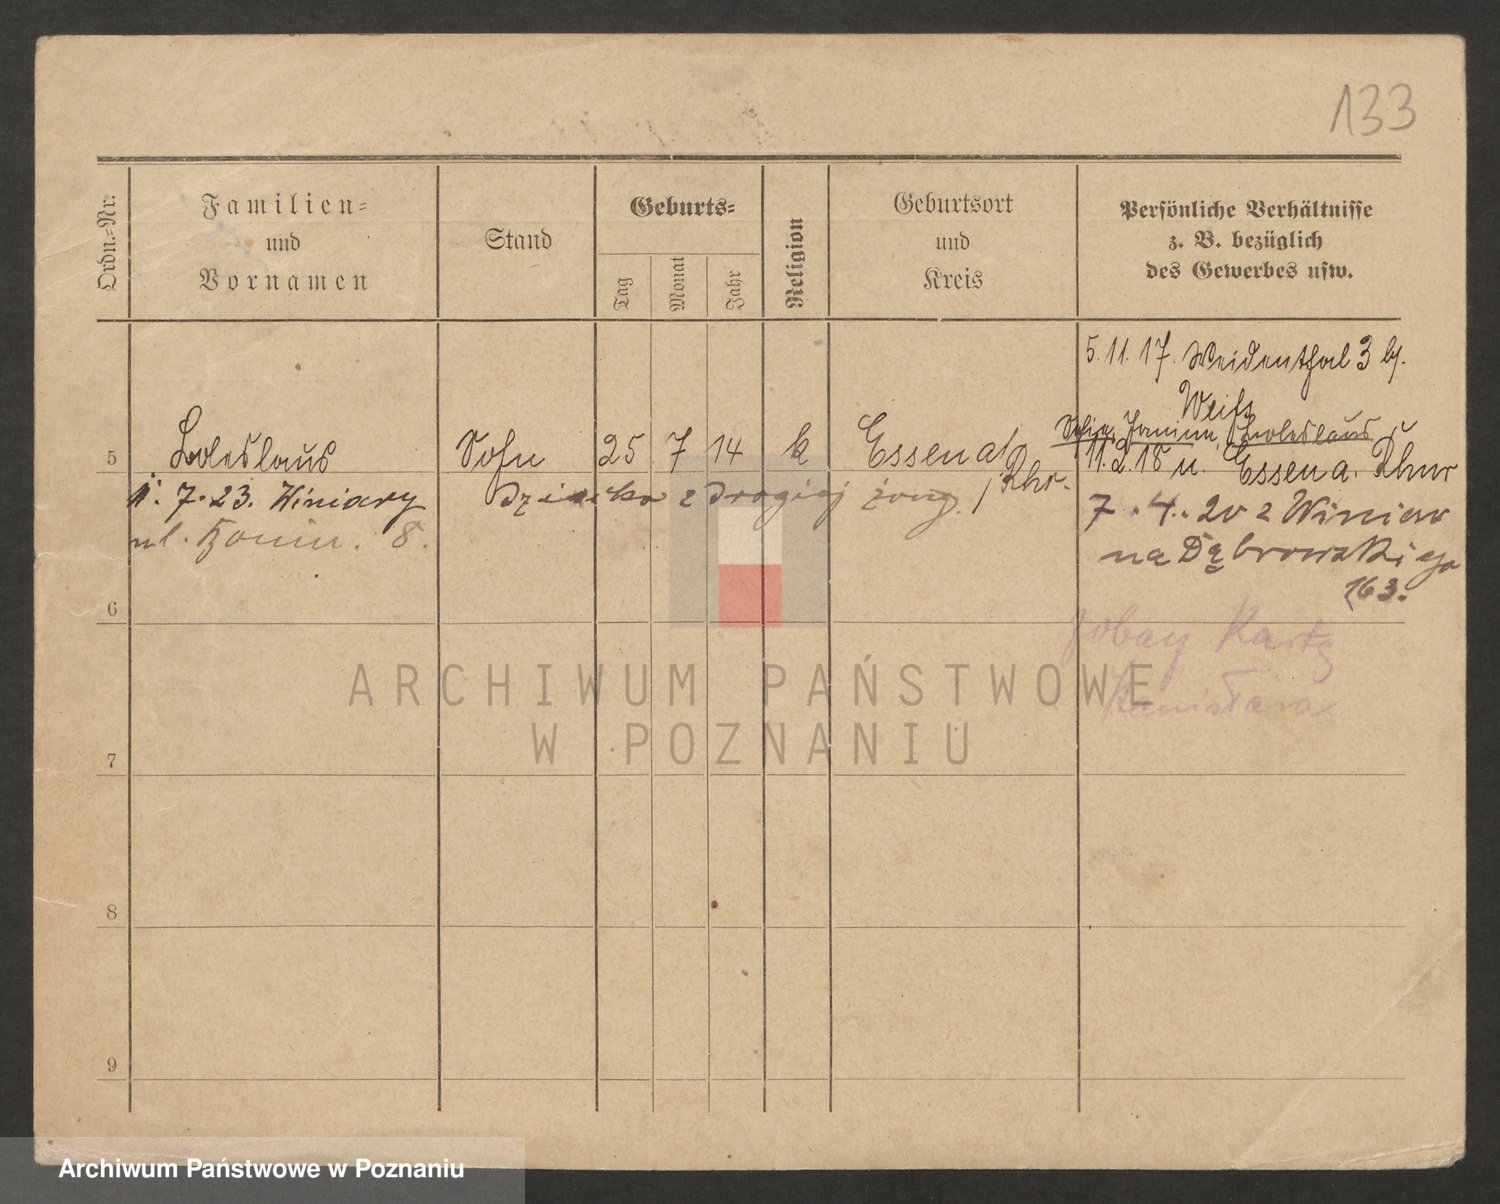 133
Ordn.-Nr.
Familien-
und
Vornamen
Stand
Geburts-
Tag
Monat
Jahr
Religion
Geburtsort
und
Kreis
Persönliche Verhältnisse
z. B. bezüglich
des Gewerbes usw.
5.11.17. Weidenthal 3 bj.
Weiss
Janina, Boleslaus
5 Boleslaus Sohn 25 7 14 k Essen a/Rhr.
11.2.18 n. Essen a. Rhur
7.23. Winiary dziecko z drogiej żony
ul. 8.
7.4.20 z Winiar
na Dąbrowskiego
163.
6
zobacz Kartę
Stanisława
7
8
9
ARCHIWUM PAŃSTWOWE
W POZNANIU
Archiwum Państwowe w Poznaniu